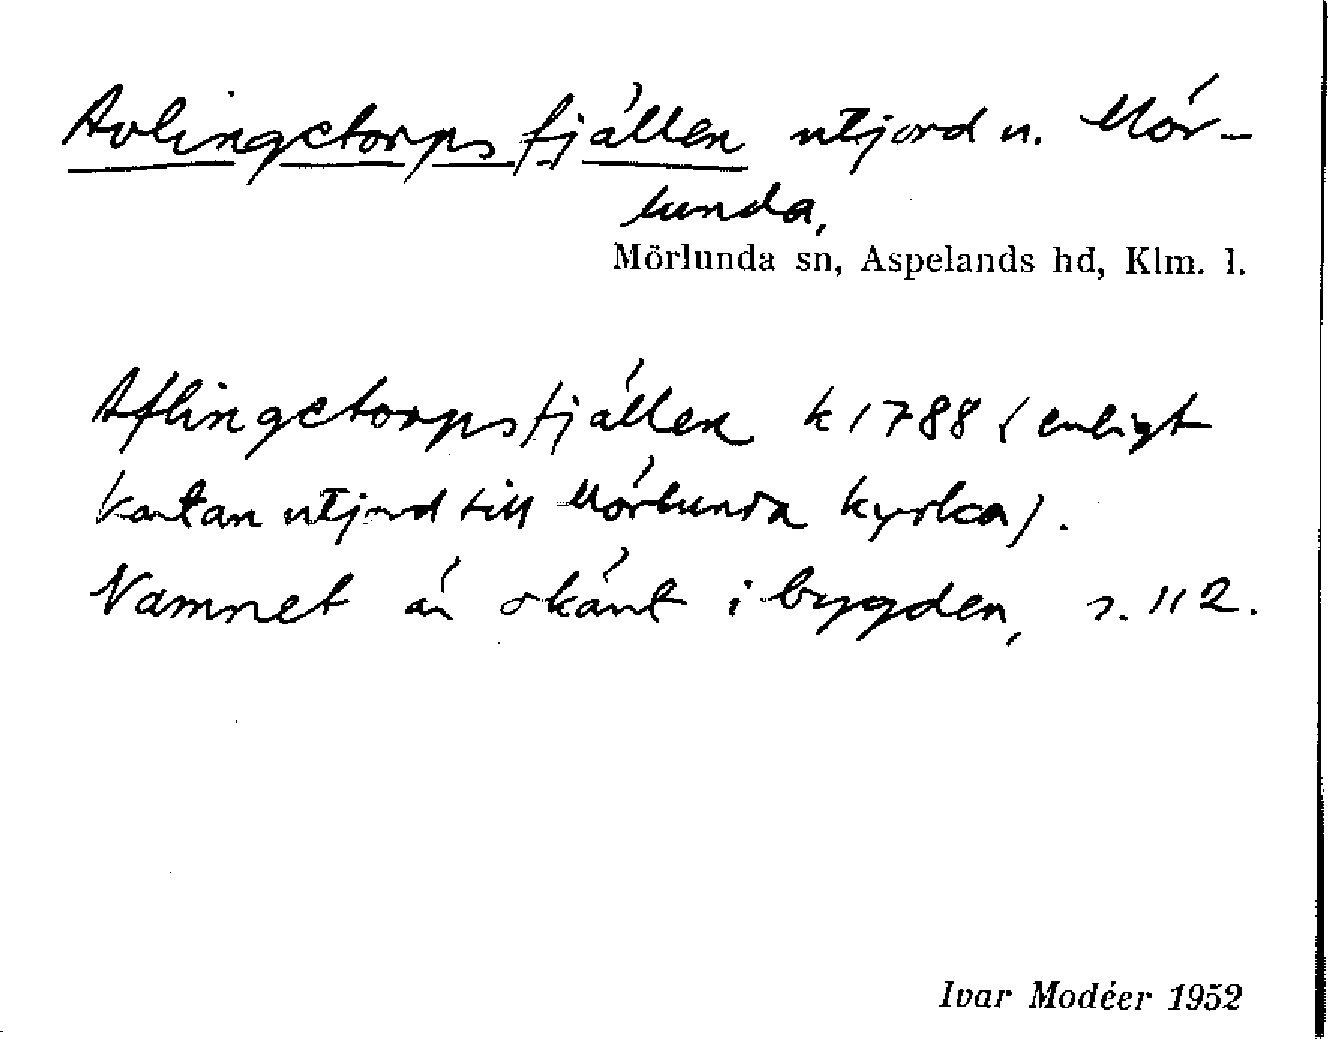 Avlingetorpsfjällen utjord u. Mör-
lunda,
Mörlunda sn, Aspelands hd, Klm. l.
Aflingetorpsfjällen k 1788 (enligt
kartan utjord till Mörlunda kyrka).
Namnet är okänt i bygden, s. 112.
Ivar Modéer 1952